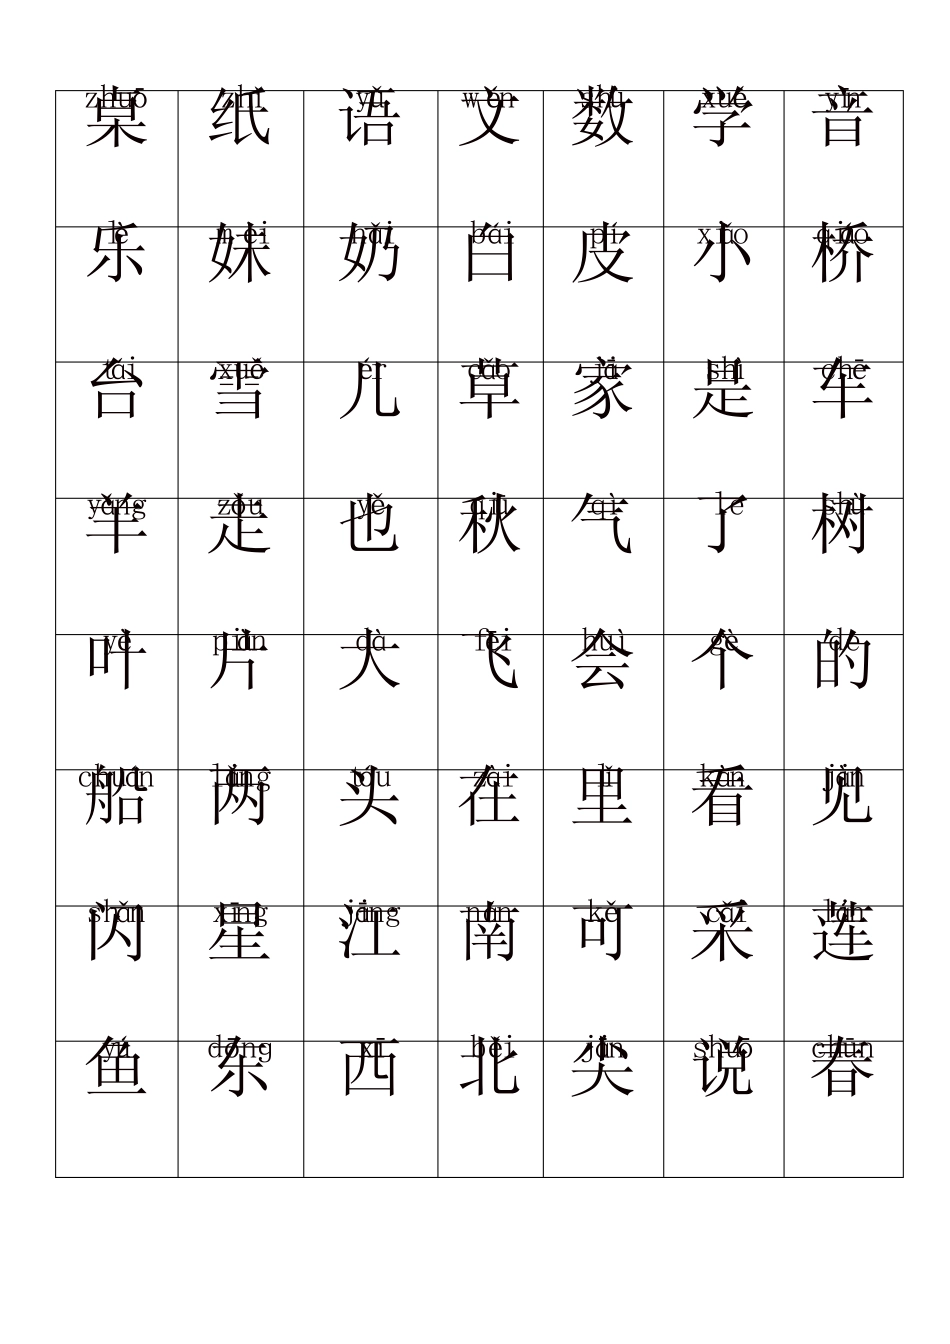 zhuō zhǐ yǔ wén shù xué yīn
桌 纸 语 文 数 学 音
lè mèi nǎi bái pí xiǎo qiáo
乐 妹 奶 白 皮 小 桥
tái xuě ér cǎo jiā shì chē
台 雪 儿 草 家 是 车
yáng zǒu yě qiū qì le shù
羊 走 也 秋 气 了 树
yè piàn dà fēi huì gè de
叶 片 大 飞 会 个 的
chuán liǎng tóu zài lǐ kàn jiàn
船 两 头 在 里 看 见
shǎn xīng jiāng nán kě cǎi lián
闪 星 江 南 可 采 莲
yú dōng xī běi jiān shuō chūn
鱼 东 西 北 尖 说 春